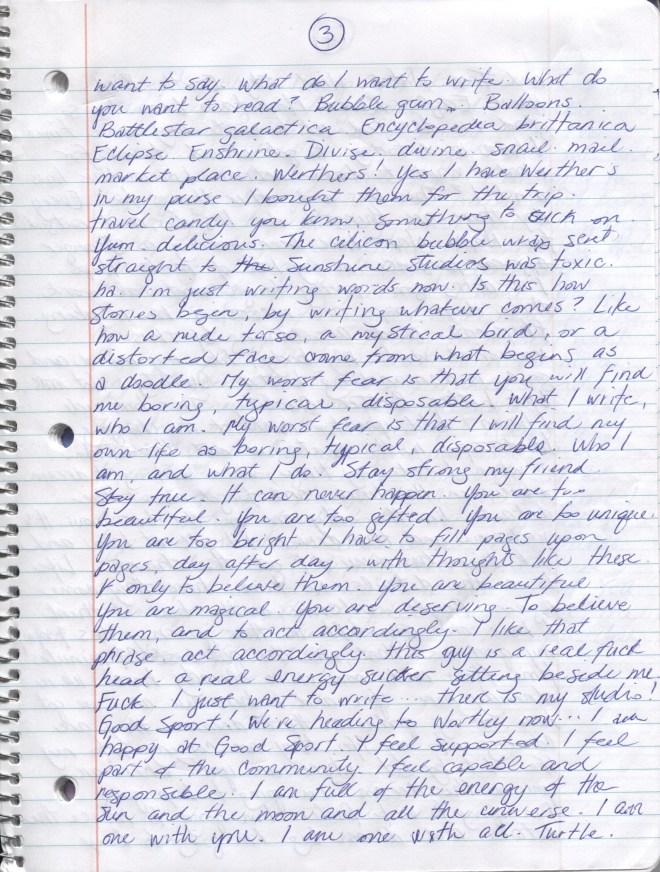 3
want to say. What do I want to write. What do
you want to read? Bubble gum. Balloons.
Battlestar galactica. Encyclopedia brittanica
Eclipse. Enshrine. Divise. divine. snail. mail.
market place. Werthers! Yes I have Werther's
in my purse. I bought them for the trip.
travel candy you know. Something to suck on.
Yum. delicious. The cilicon bubble wrap sent
straight to the Sunshine studios was toxic.
ha. I'm just writing words now. Is this how
stories begin, by writing whatever comes? Like
how a nude torso, a mystical bird, or a
distorted face come from what begins as
a doodle. My worst fear is that you will find
me boring, typical, disposable. What I write,
who I am. My worst fear is that I will find my
own life as boring, typical, disposable. Who I
am, and what I do. Stay strong my friend
Stay true. It can never happen. You are too
beautiful. You are too gifted. You are too unique.
You are too bright. I have to fill pages upon
pages, day after day, with thoughts like these.
only to believe them. You are beautiful
You are magical. You are deserving. To believe
them, and to act accordingly. I like that
phrase. act accordingly. this guy is a real fuck
head. a real energy sucker sitting beside me
Fuck. I just want to write... there is my studio!
Good Sport! We're heading to Wortley now... I am
happy at Good Sport. I feel supported. I feel
part of the community. I feel capable and
responsible. I am full of the energy of the
sun and the moon and all the universe. I am
one with you. I am one with all. Turtle.